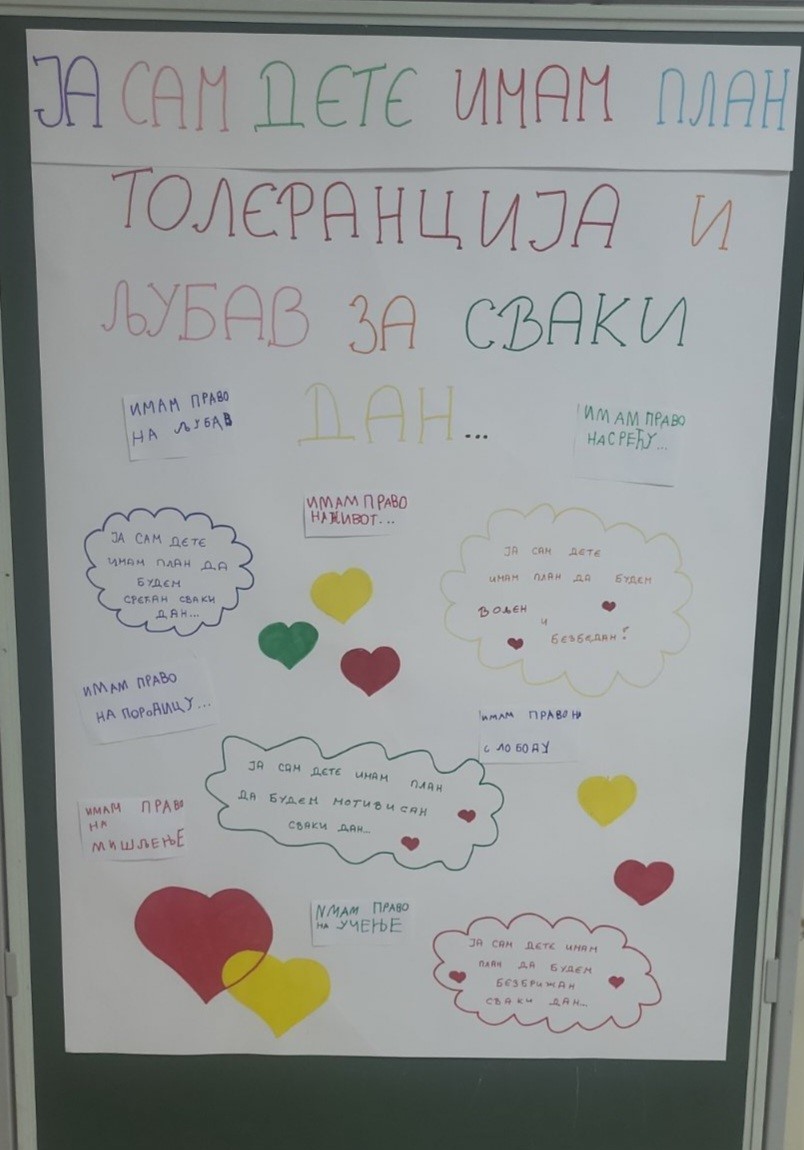 ЈА САМ ДЕТЕ ИМАМ ПЛАН
ТОЛЕРАНЦИЈА И
ЉУБАВ ЗА СВАКИ
ДАН...
ИМАМ ПРАВО
НА ЉУБАВ
ИМАМ ПРАВО
НА СРЕЋУ...
ИМАМ ПРАВО
НА ЖИВОТ...
ЈА САМ ДЕТЕ
ИМАМ ПЛАН ДА
БУДЕМ
СРЕЋАН СВАКИ
ДАН...
ЈА САМ ДЕТЕ
ИМАМ ПЛАН ДА БУДЕМ
ВОЉЕН
И
БЕЗБЕДАН!
ИМАМ ПРАВО
НА ПОРОДИЦУ...
ИМАМ ПРАВО НА
СЛОБОДУ
ЈА САМ ДЕТЕ ИМАМ ПЛАН
ДА БУДЕМ МОТИВИСАН
СВАКИ ДАН...
ИМАМ ПРАВО
НА
МИШЉЕЊЕ
ИМАМ ПРАВО
НА УЧЕЊЕ
ЈА САМ ДЕТЕ ИМАМ
ПЛАН ДА БУДЕМ
БЕЗБРИЖАН
СВАКИ ДАН...